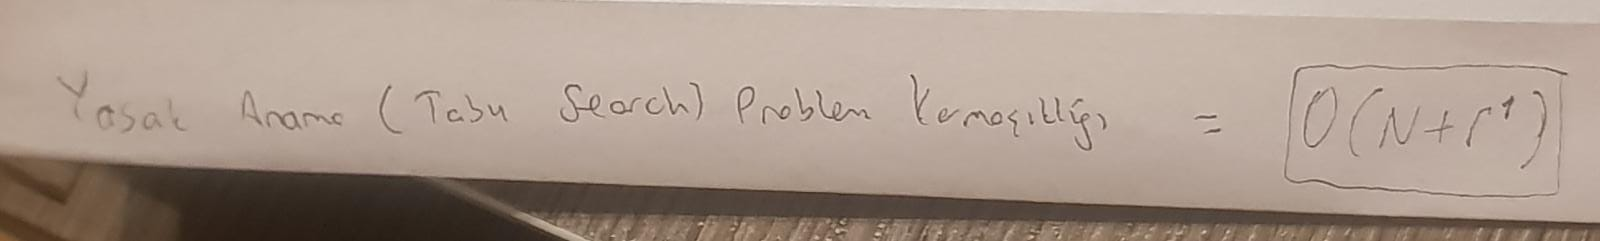 Yasak Arama (Tabu Search) Problem Karmaşıklığı = O(N+r¹)